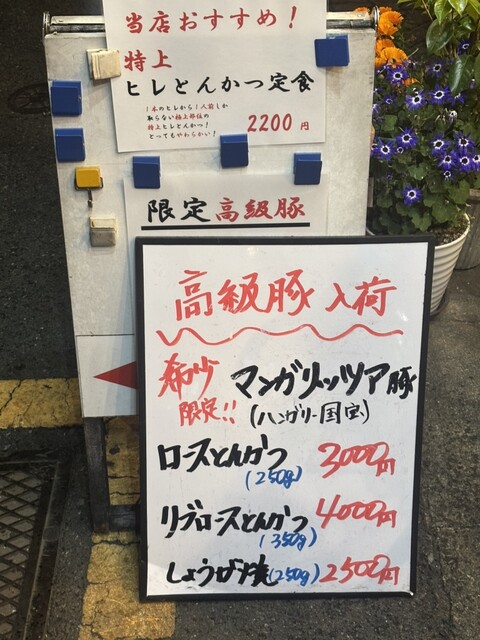 当店おすすめ!
特上
ヒレとんかつ定食
1本のヒレから1人前しか
取らない極上部位の
特上ヒレとんかつ!
とってもやわらかい!
2200円
限定高級豚
高級豚入荷
希少 マンガリッツア豚
限定!! (ハンガリー国宝)
ロースとんかつ 3000円
(250g)
リブロースとんかつ 4000円
(350g)
しょうが焼(250g) 2500円